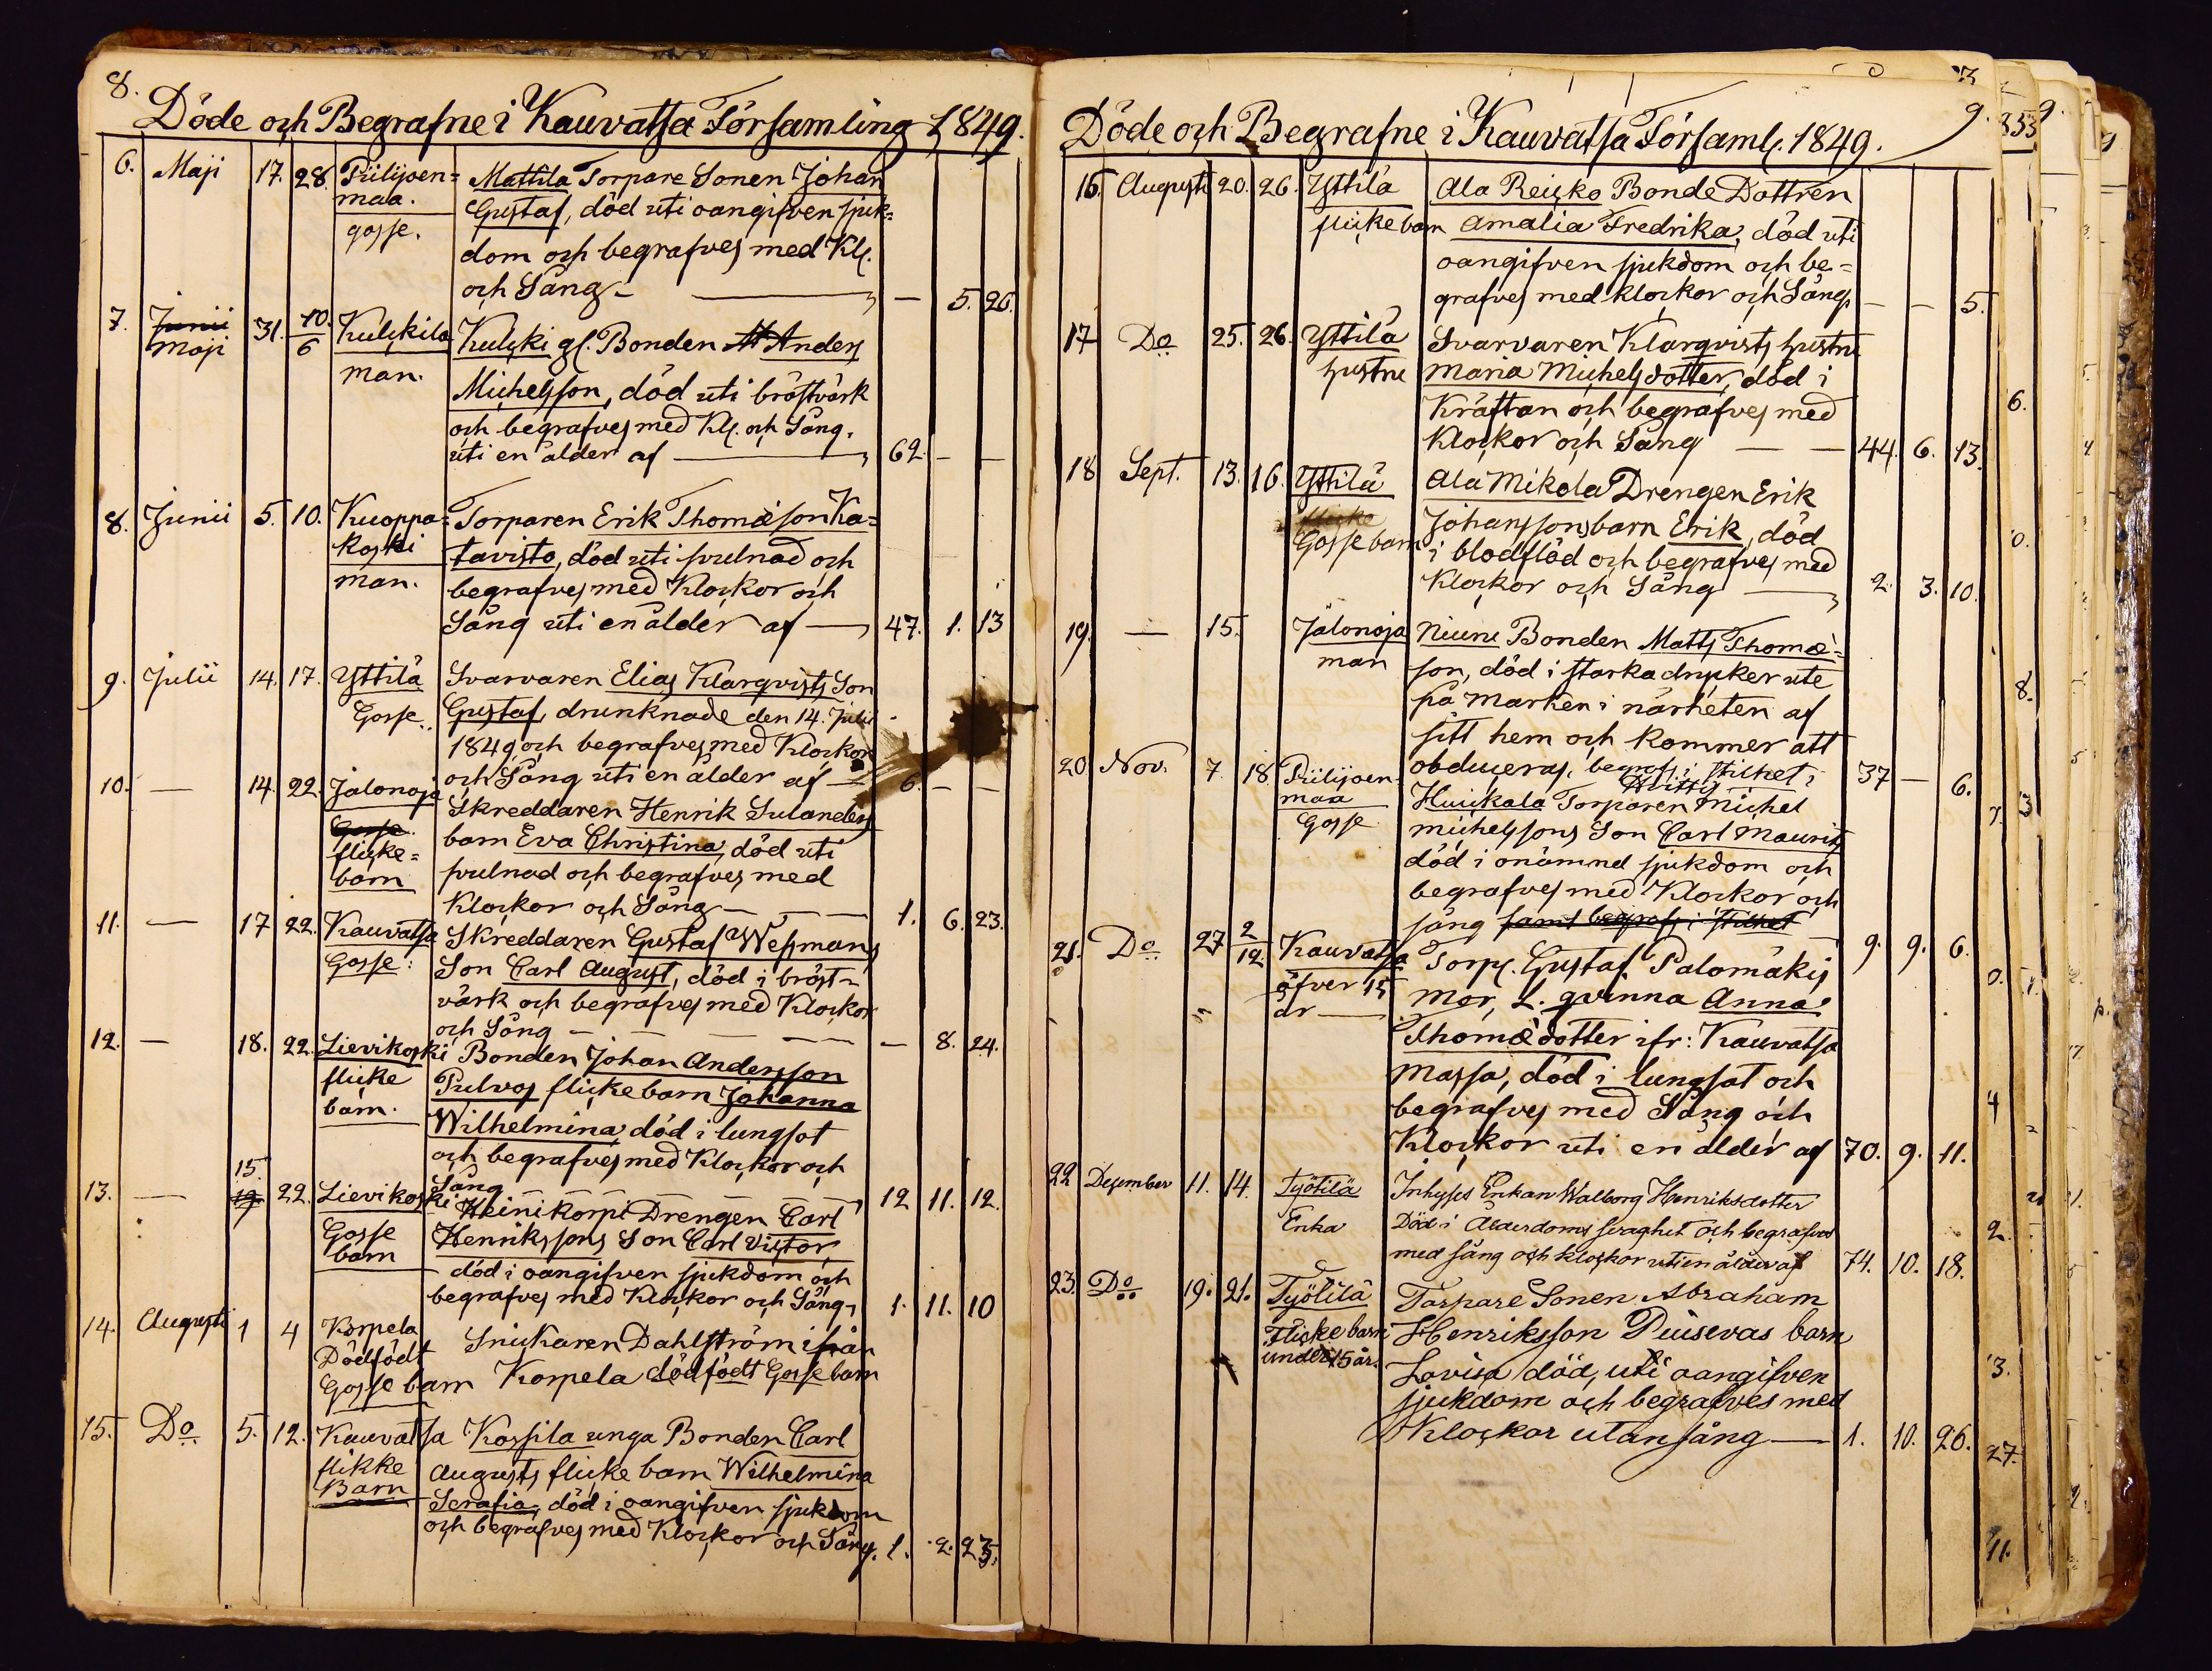 8.
Döde och Begrafne i Kauvatsa Församling 1849.
6. Maji 17. 28. Piilijoen= Mattila Torpare Sonen Johan
maa. Gustaf, död uti oangifven sjuk=
gosse. dom och begrafves med Kl.
och Sång — — 5. 26.
7. Junii 31. 10. Kulkkila Kulkki gl. Bonden M Anders
Maji 6
man. Michelsson, död uti bröstvärk
och begrafves med Kl. och Sång.
uti en ålder af — 62. — —
8. Junii 5. 10. Kuoppa= Torparen Erik Thomæson Ka=
koski tavisto, död uti svulnad och
man. begrafves med Klockor och
Sång uti en ålder af — 47. 1. 13
9. Julii 14. 17. Yttilä Svarvaren Elias Klarqvists Son
Gosse. Gustaf, drunknade den 14. Julii
1849 och begrafves med Klockor
och Sång uti en ålder af — 6. — —
10. — 14. 22. Jalonoja Skreddaren Henrik Sulanders
Gosse barn Eva Christina, död uti
flicke= svulnad och begrafves med
barn Klockor och Sång — — — 1. 6. 23.
11. — 17 22. Kauvatsa Skreddaren Gustaf Wessmans
Gosse: Son Carl August, död i bröst-
värk och begrafves med Klockor
och Sång — — — — 8. 24.
12. — 18. 22. Lievikoski Bonden Johan Andersson
flicke Pulvos flickebarn Johanna
barn. Wilhelmina, död i lungsot
och begrafves med Klockor och
15. Sång — — — 12 11. 12.
13. — 19. 22. Lievikoski Heinikorpi Drengen Carl
Gosse Henrikssons Son Carl Victor
barn död i oangifven sjukdom och
begrafves med Klockor och Sång, 1. 11. 10
14. Augusti 1 4 Korpela Snickaren Dahlström ifrån
Dödfödt Korpela dödfödt Gosse barn
Gosse barn
15. Do 5. 12. Kauvatsa Kossila unga Bonden Carl
flikke Augusts flicke barn Wilhelmina
Barn Serafia, död i oangifven sjukdom
och begrafves med Klockor och Sång. 1. 2. 23.
9.
Döde och Begrafne i Kauvatsa Församl. 1849.
16. Augusti 20. 26. Yttilä Ala Reicko Bonde Dottren
flickebarn Amalia Fredrika, död uti
oangifven sjukdom och be=
grafves med klockor och Sång — — 5.
17 Do 25. 26. Yttilä Svarvaren Klarqvists hustru
hustru Maria Michelsdotter, död i
Kräftan och begrafves med
Klockor och Sång — — 44. 6. 13.
18 Sept. 13. 16. Yttilä Ala Mikola Drengen Erik
flicke Johanssons barn Erik, död
Gosse barn i blodflöd och begrafves med
Klockor och Sång — 2. 3. 10.
19. — 15. Jalonoja Niuni Bonden Matts Thomæ=
man son, död i starka drycker ute
på marken i närheten af
sitt hem och kommer att
obduceras, begraf. i stilhet 37 — 6.
20 Nov. 7. 18. Piilijoen= Huickala Torparen Michel
maa Michelssons Son Carl Maurits
Gosse död i onämnd sjukdom och
begrafves med Klockor och
sång samt begrafs i stilhet 9. 9. 6.
21. Do 27 2 Kauvatsa Torp. Gustaf Palomäkis
12.
öfver 15 Mor, L. qvinna Anna
år — Thomædotter ifr: Kauvatsa
Massa, död i lungsot och
begrafves med Sång och
Klockor uti en ålder af 70. 9. 11.
22 December 11. 14. Työtilä Inhyses Enkan Walborg Henriksdotter
Enka Död i Ålderdoms svaghet och begrafves
med sång och klockor uti en ålder af 74. 10. 18.
23. Do 19. 21. Työtilä Torpare Sonen Abraham
Flicke barn Henriksson Piusevas barn
under 15 år. Lovisa död, uti oangifven
sjukdom och begrafves med
Klockor utan sång — 1. 10. 26.
353